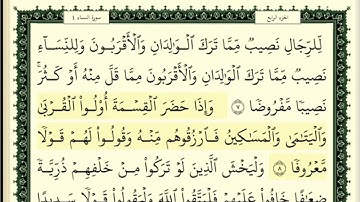 الجزء الرابع سورة النساء ٤
لِّلرِّجَالِ نَصِيبٌ مِّمَّا تَرَكَ الْوَالِدَانِ وَالْأَقْرَبُونَ وَلِلنِّسَاءِ
نَصِيبٌ مِّمَّا تَرَكَ الْوَالِدَانِ وَالْأَقْرَبُونَ مِمَّا قَلَّ مِنْهُ أَوْ كَثُرَ
نَصِيبًا مَّفْرُوضًا ٧ وَإِذَا حَضَرَ الْقِسْمَةَ أُوْلُوا الْقُرْبَىٰ
وَالْيَتَامَىٰ وَالْمَسَاكِينُ فَارْزُقُوهُم مِّنْهُ وَقُولُوا لَهُمْ قَوْلًا
مَّعْرُوفًا ٨ وَلْيَخْشَ الَّذِينَ لَوْ تَرَكُوا مِنْ خَلْفِهِمْ ذُرِّيَّةً
ضِعَافًا خَافُوا عَلَيْهِمْ فَلْيَتَّقُوا اللَّهَ وَلْيَقُولُوا قَوْلًا سَدِيدًا